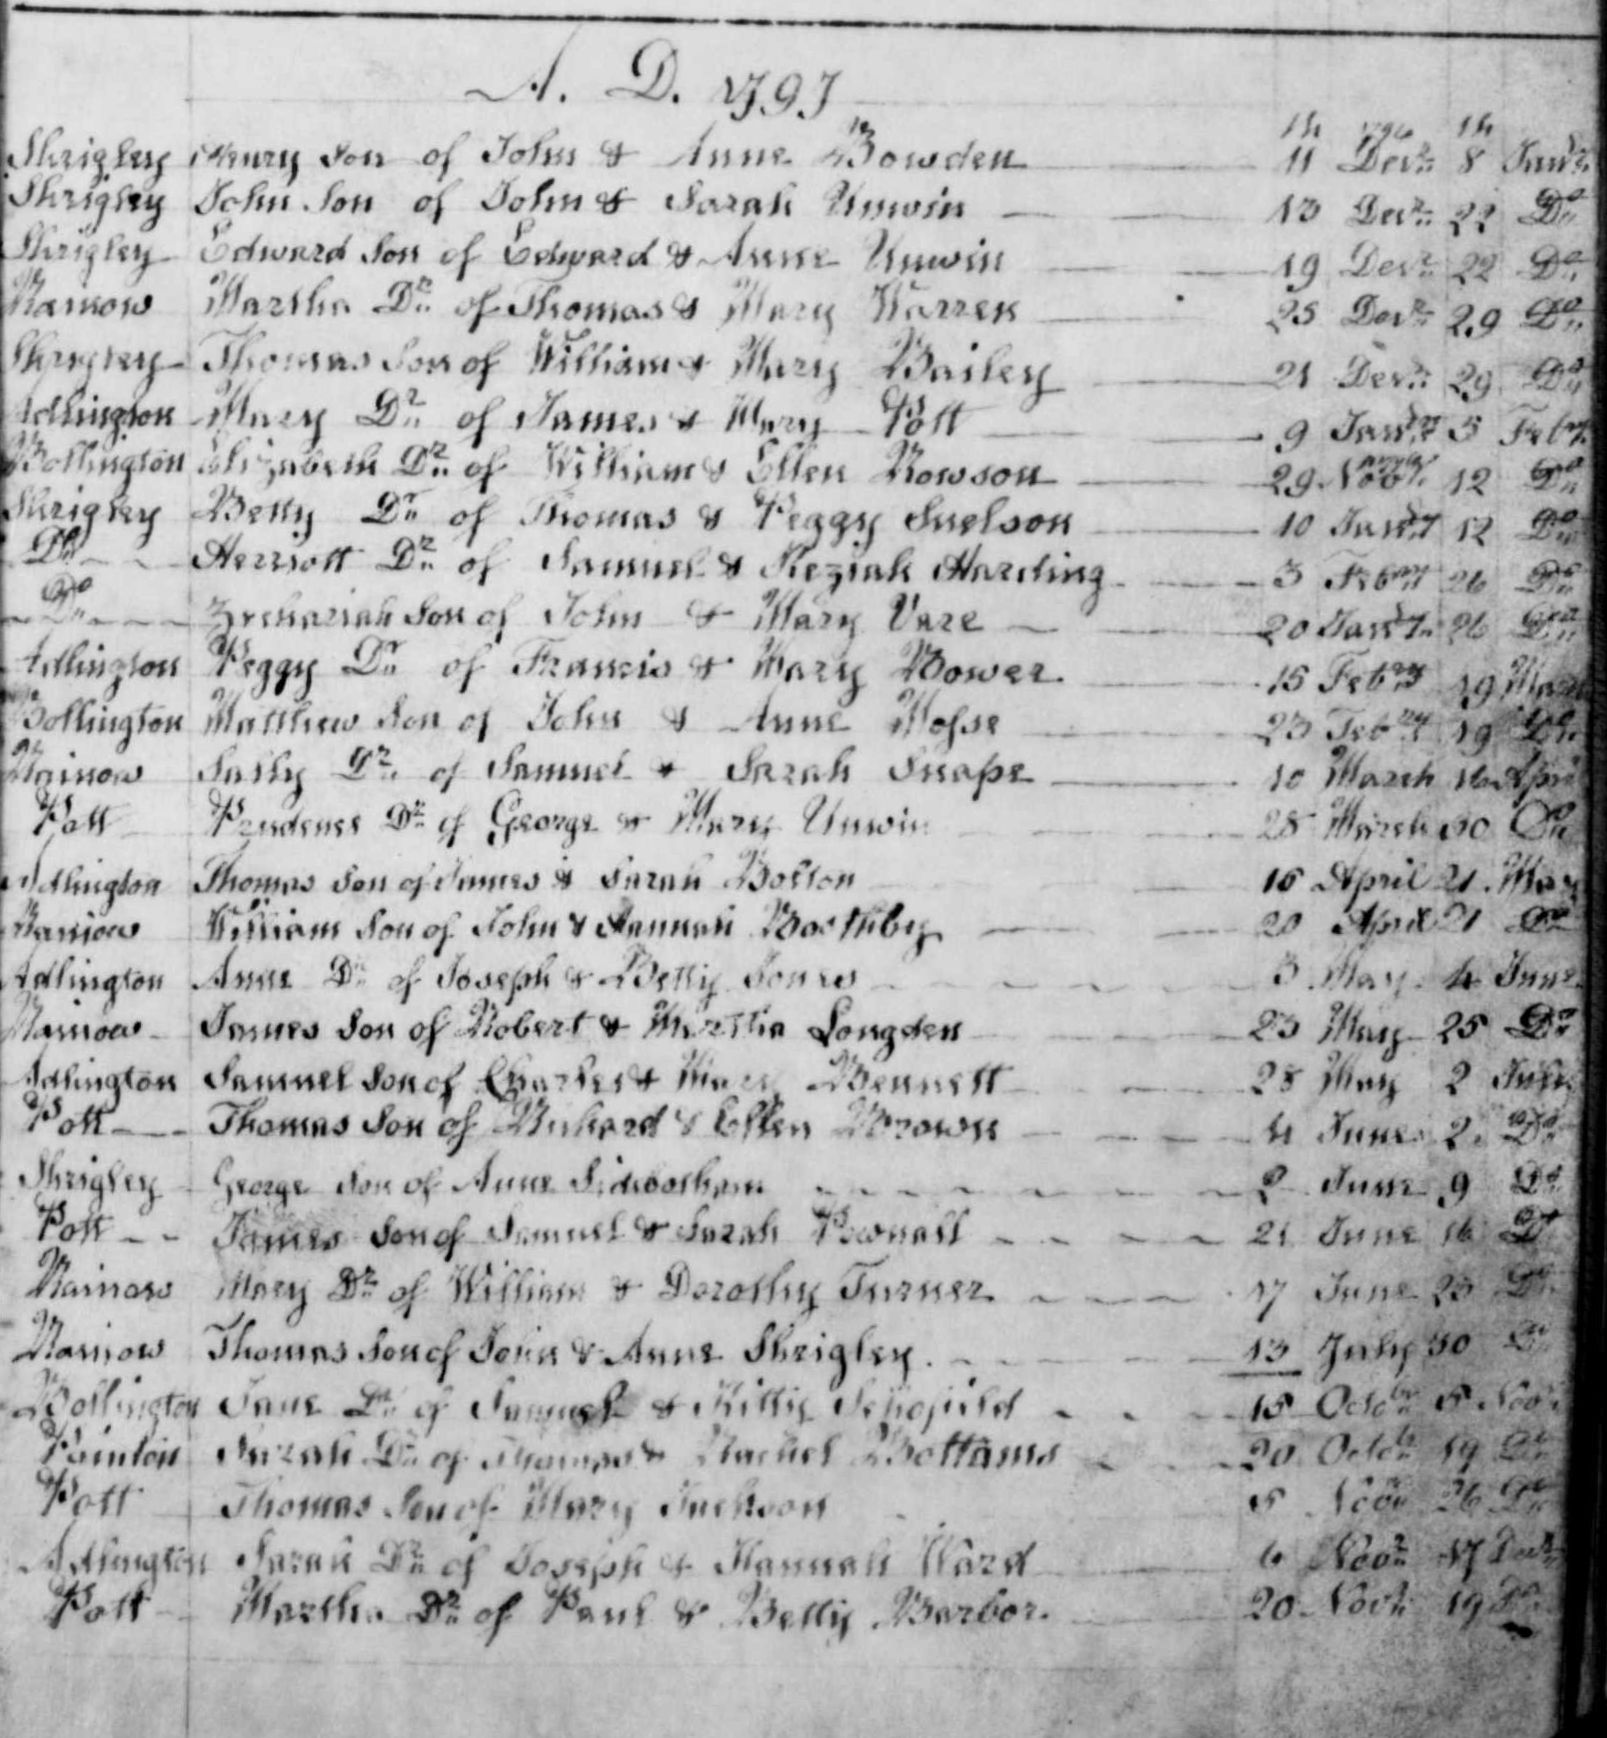 A. D. 1797
Shrigley Henry Son of John & Anne Bowden 11th Decr. 1796 8th Janry.
Shrigley John Son of John & Sarah Unwin 13 Decr. 22 Do.
Shrigley Edward Son of Edward & Anne Unwin 19 Decr. 22 Do.
Rainow Martha Dr. of Thomas & Mary Warren 25 Decr. 29 Do.
Shrigley Thomas Son of William & Mary Bailey 21 Decr. 29 Do.
Adlington Mary Dr. of James & Mary Pott 9 Janry. 5 Febry.
Bollington Elizabeth Dr. of William & Ellen Rowson 29 Novr. 12 Do.
Shrigley Betty Dr. of Thomas & Peggy Snelson 10 Janry. 12 Do.
Do. Herriott Dr. of Samuel & Keziah Harding 3 Febry. 26 Do.
Do. Zechariah Son of John & Mary Vare 20 Janry. 26 Do.
Adlington Peggy Dr. of Francis & Mary Bower 15 Febry. 19 March
Bollington Matthew Son of John & Anne Mosse 23 Febry. 19 Do.
Rainow Sally Dr. of Samuel & Sarah Snape 10 March 16 April
Pott Prudence Dr. of George & Mary Unwin 28 March 30 Do.
Adlington Thomas Son of James & Sarah Bolton 16 April 21 May
Rainow William Son of John & Hannah Boothby 20 April 21 Do.
Adlington Anne Dr. of Joseph & Betty Jones 3 May 4 June
Rainow James Son of Robert & Martha Longden 23 May 25 Do.
Adlington Samuel Son of Charles & Mary Bennett 28 May 2 July
Pott Thomas Son of Richard & Ellen Brown 4 June 2 Do.
Shrigley George Son of Anne Sidebotham June 9 Do.
Pott James Son of Samuel & Sarah Pownall 21 June 16 Do
Rainow Mary Dr. of William & Dorothy Turner 17 June 23 Do.
Rainow Thomas Son of John & Anne Shrigley. 13 July 30 Do.
Bollington Jane Dr. of Samuel & Kitty Schofield 15 Octobr. 5 Novr.
Pointon Sarah Dr. of Thomas & Rachel Bottams 20 Octobr. 19 Do.
Pott Thomas Son of Mary Jackson 5 Novr. 26 Do.
Adlington Sarah Dr. of Joseph & Hannah Ward 6 Novr. 17 Decr.
Pott Martha Dr. of Paul & Betty Barbor. 20 Novr. 19 Do.